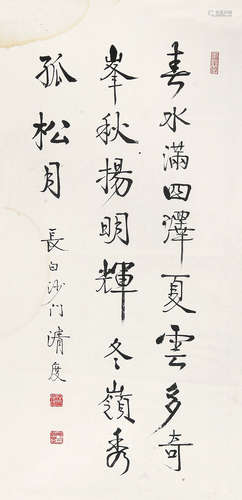 春水滿四澤夏雲多奇
峯秋揚明輝冬嶺秀
孤松月
長白沙门濟度